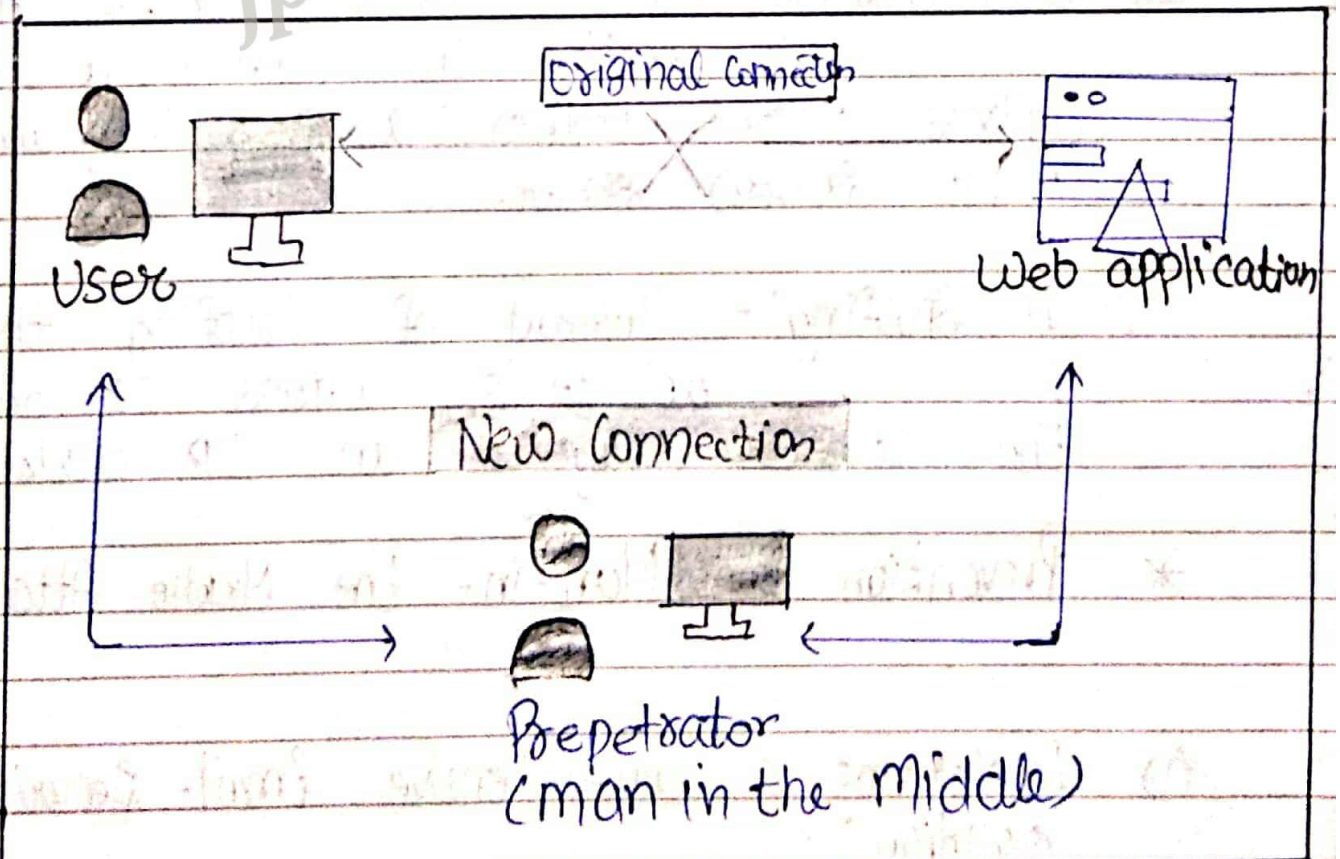 jp
Original Connection
User
Web application
New Connection
Prepetrator
(man in the Middle)